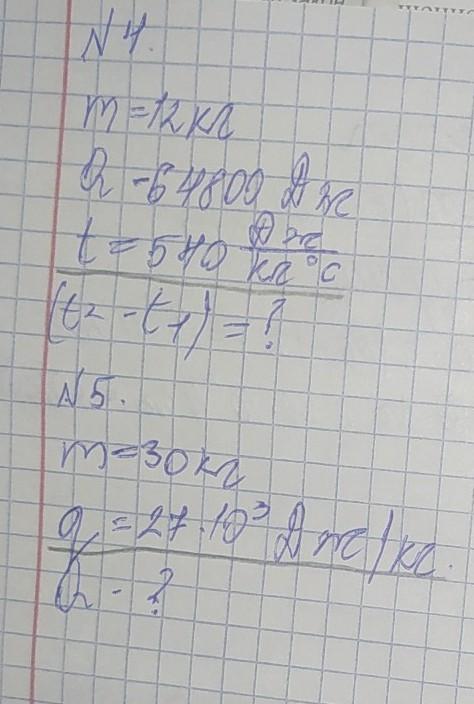 N4.
m=12кг
Q-64800 Дж
t=540 Дж/кг°С
(t2-t1)=?
N5.
m=30кг
q=27·10³ Дж/кг.
Q-?